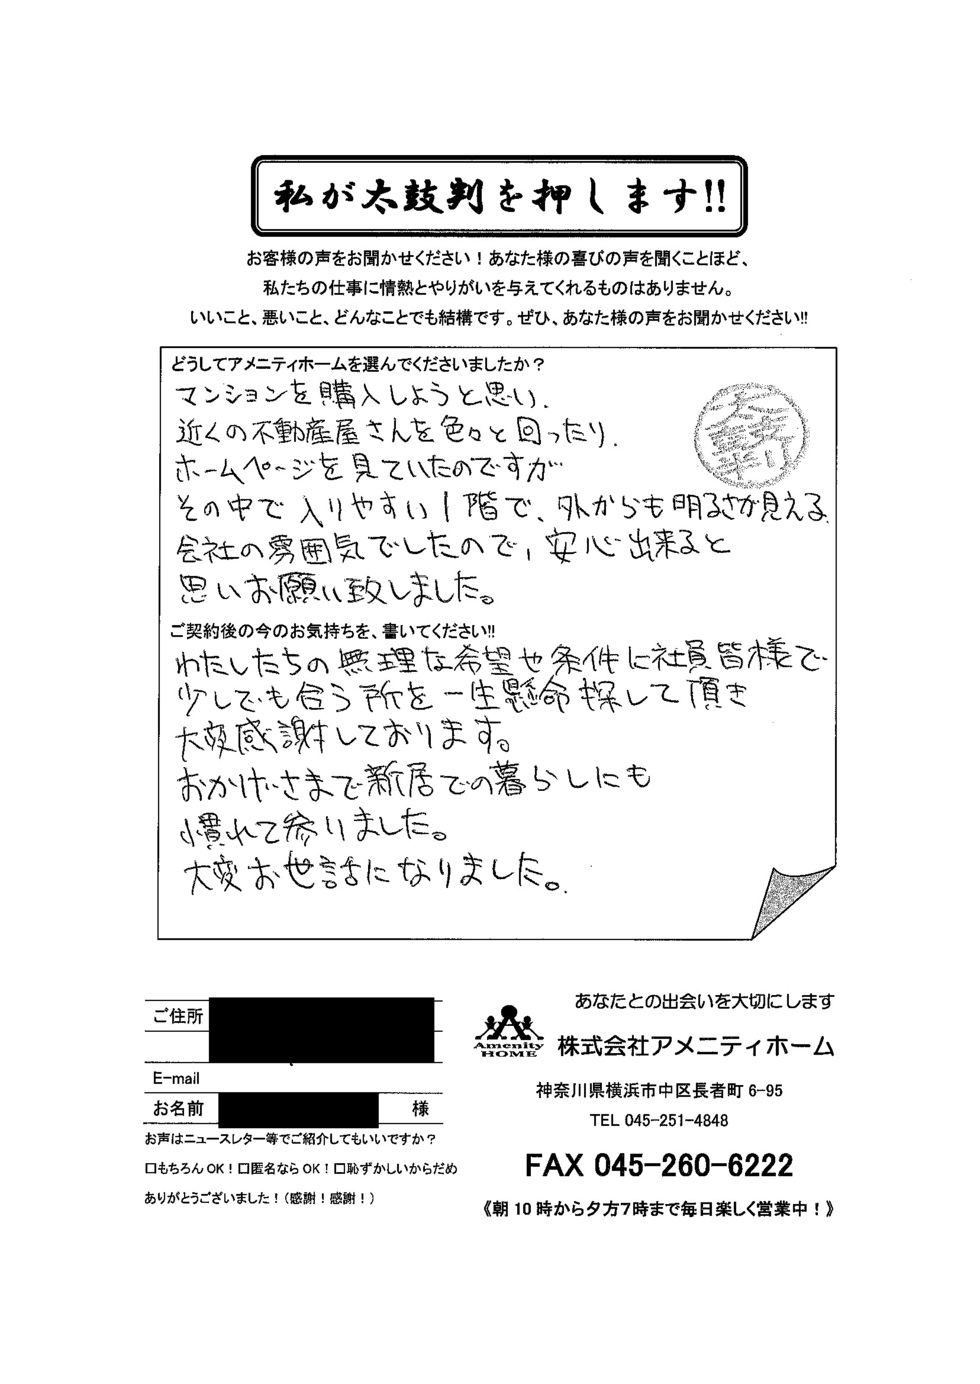 私が太鼓判を押します!!
お客様の声をお聞かせください！あなた様の喜びの声を聞くことほど、
私たちの仕事に情熱とやりがいを与えてくれるものはありません。
いいこと、悪いこと、どんなことでも結構です。ぜひ、あなた様の声をお聞かせください!!
どうしてアメニティホームを選んでくださいましたか？
マンションを購入しようと思い、
近くの不動産屋さんを色々と回ったり、
ホームページを見ていたのですが
その中で入りやすい1階で、外からも明るさが見える
会社の雰囲気でしたので、安心出来ると
思いお願い致しました。
太鼓判
ご契約後の今のお気持ちを、書いてください!!
わたしたちの無理な希望や条件に社員皆様で
少しでも合う所を一生懸命探して頂き
大変感謝しております。
おかげさまで新居での暮らしにも
慣れて参りました。
大変お世話になりました。
ご住所
E-mail
お名前 様
お声はニュースレター等でご紹介してもいいですか？
□もちろんOK！□匿名ならOK！□恥ずかしいからだめ
ありがとうございました！（感謝！感謝！）
あなたとの出会いを大切にします
Amenity
HOME
株式会社アメニティホーム
神奈川県横浜市中区長者町 6-95
TEL 045-251-4848
FAX 045-260-6222
《朝10時から夕方7時まで毎日楽しく営業中！》